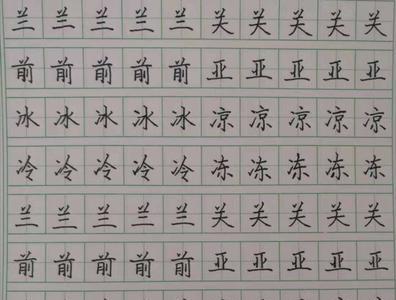 兰兰兰兰兰关关关关关
前前前前前亚亚亚亚亚
冰冰冰冰冰凉凉凉凉凉
冷冷冷冷冷冻冻冻冻冻
兰兰兰兰兰关关关关关
前前前前前亚亚亚亚亚